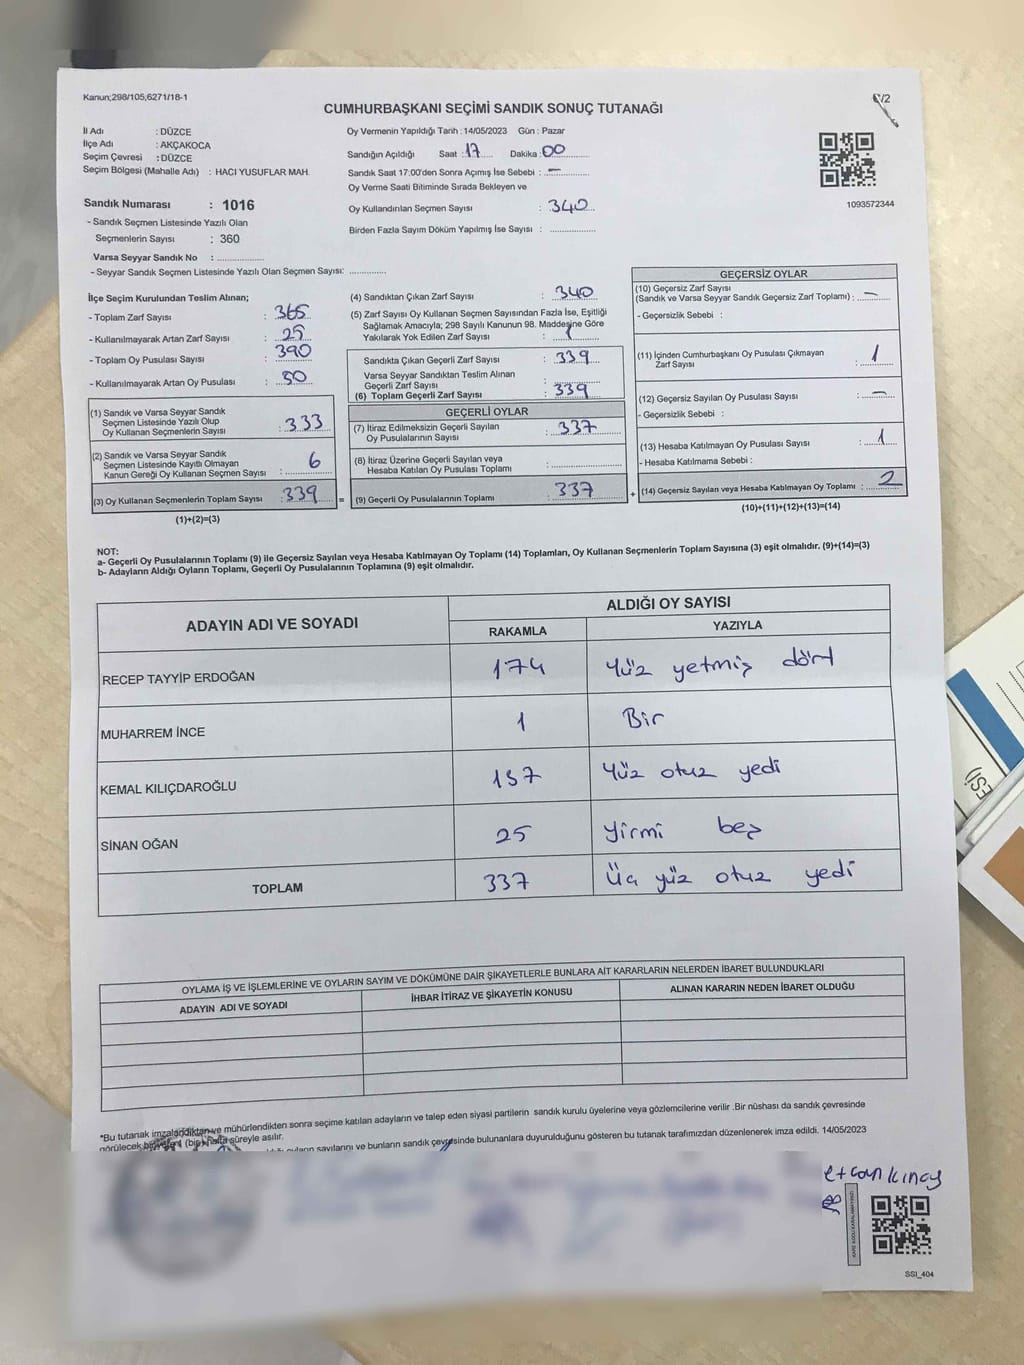 Kanun;298/105,6271/18-1
CUMHURBAŞKANI SEÇİMİ SANDIK SONUÇ TUTANAĞI
/2
İl Adı : DÜZCE
İlçe Adı : AKÇAKOCA
Seçim Çevresi : DÜZCE
Seçim Bölgesi (Mahalle Adı) : HACI YUSUFLAR MAH.
Sandık Numarası : 1016
- Sandık Seçmen Listesinde Yazılı Olan
Seçmenlerin Sayısı : 360
Varsa Seyyar Sandık No : ................
- Seyyar Sandık Seçmen Listesinde Yazılı Olan Seçmen Sayısı: ............
Oy Vermenin Yapıldığı Tarih : 14/05/2023 Gün : Pazar
Sandığın Açıldığı Saat : 17 Dakika : 00
Sandık Saat 17:00'den Sonra Açımış İse Sebebi : -
Oy Verme Saati Bitiminde Sırada Bekleyen ve
Oy Kullandırılan Seçmen Sayısı : 340
Birden Fazla Sayım Döküm Yapılmış İse Sayısı : ...............
1093572344
İlçe Seçim Kurulundan Teslim Alınan;
- Toplam Zarf Sayısı : 365
- Kullanılmayarak Artan Zarf Sayısı : 25
- Toplam Oy Pusulası Sayısı : 390
- Kullanılmayarak Artan Oy Pusulası : 50
(1) Sandık ve Varsa Seyyar Sandık
Seçmen Listesinde Yazılı Olup
Oy Kullanan Seçmenlerin Sayısı : 333
(2) Sandık ve Varsa Seyyar Sandık
Seçmen Listesinde Kayıtlı Olmayan
Kanun Gereği Oy Kullanan Seçmen Sayısı : 6
(3) Oy Kullanan Seçmenlerin Toplam Sayısı : 339 =
(1)+(2)=(3)
(4) Sandıktan Çıkan Zarf Sayısı : 340
(5) Zarf Sayısı Oy Kullanan Seçmen Sayısından Fazla İse, Eşitliği
Sağlamak Amacıyla; 298 Sayılı Kanunun 98. Maddesine Göre
Yakılarak Yok Edilen Zarf Sayısı : 1
Sandıkta Çıkan Geçerli Zarf Sayısı : 339
Varsa Seyyar Sandıktan Teslim Alınan
Geçerli Zarf Sayısı : ............
(6) Toplam Geçerli Zarf Sayısı : 339
GEÇERLİ OYLAR
(7) İtiraz Edilmeksizin Geçerli Sayılan
Oy Pusulalarının Sayısı : 337
(8) İtiraz Üzerine Geçerli Sayılan veya
Hesaba Katılan Oy Pusulası Toplamı : ..................
(9) Geçerli Oy Pusulalarının Toplamı : 337 +
GEÇERSİZ OYLAR
(10) Geçersiz Zarf Sayısı
(Sandık ve Varsa Seyyar Sandık Geçersiz Zarf Toplamı) : -
- Geçersizlik Sebebi :
(11) İçinden Cumhurbaşkanı Oy Pusulası Çıkmayan
Zarf Sayısı : 1
(12) Geçersiz Sayılan Oy Pusulası Sayısı : -
- Geçersizlik Sebebi :
(13) Hesaba Katılmayan Oy Pusulası Sayısı : 1
- Hesaba Katılmama Sebebi :
(14) Geçersiz Sayılan veya Hesaba Katılmayan Oy Toplamı : 2
(10)+(11)+(12)+(13)=(14)
NOT:
a- Geçerli Oy Pusulalarının Toplamı (9) ile Geçersiz Sayılan veya Hesaba Katılmayan Oy Toplamı (14) Toplamları, Oy Kullanan Seçmenlerin Toplam Sayısına (3) eşit olmalıdır. (9)+(14)=(3)
b- Adayların Aldığı Oyların Toplamı, Geçerli Oy Pusulalarının Toplamına (9) eşit olmalıdır.
ADAYIN ADI VE SOYADI ALDIĞI OY SAYISI
RAKAMLA YAZIYLA
RECEP TAYYİP ERDOĞAN 174 Yüz yetmiş dört
MUHARREM İNCE 1 Bir
KEMAL KILIÇDAROĞLU 137 Yüz otuz yedi
SİNAN OĞAN 25 Yirmi beş
TOPLAM 337 Üç yüz otuz yedi
OYLAMA İŞ VE İŞLEMLERİNE VE OYLARIN SAYIM VE DÖKÜMÜNE DAİR ŞİKAYETLERLE BUNLARA AİT KARARLARIN NELERDEN İBARET BULUNDUKLARI
ADAYIN ADI VE SOYADI İHBAR İTİRAZ VE ŞİKAYETİN KONUSU ALINAN KARARIN NEDEN İBARET OLDUĞU
*Bu tutanak imzalandıktan ve mühürlendikten sonra seçime katılan adayların ve talep eden siyasi partilerin sandık kurulu üyelerine veya gözlemcilerine verilir .Bir nüshası da sandık çevresinde
görülecek bir yere (bir) hafta süreyle asılır.
oyların sayılarını ve bunların sandık çevresinde bulunanlara duyurulduğunu gösteren bu tutanak tarafımızdan düzenlenerek imza edildi. 14/05/2023
SSI_404
ESİ)